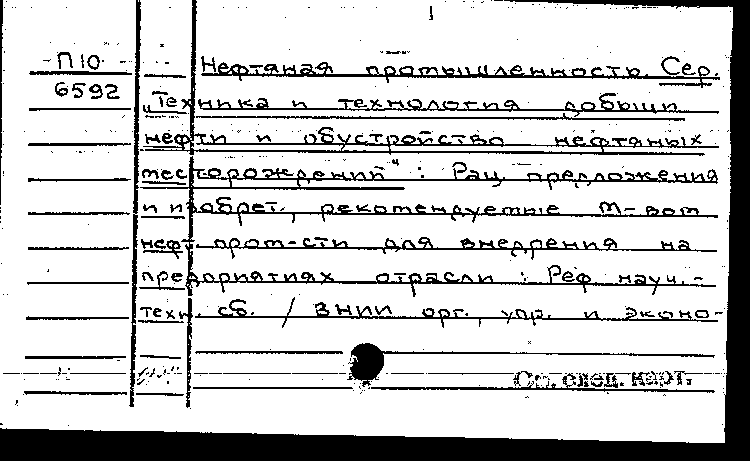 П10 Нефтяная промышленность. Сер.
6592 „Техника и технология добычи
нефти и обустройство нефтяных
месторождений“ : Рац. предложения
и изобрет., рекомендуемые М-вом
нефт. пром-сти для внедрения на
предприятиях отрасли : Реф. науч.-
техн. сб. / ВНИИ орг., упр. и эконо-
См. след. карт.